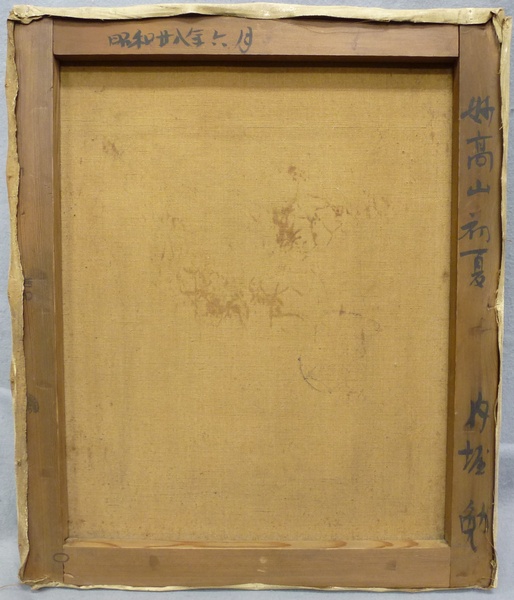 昭和廿八年六月
妙高山初夏
内堀勲